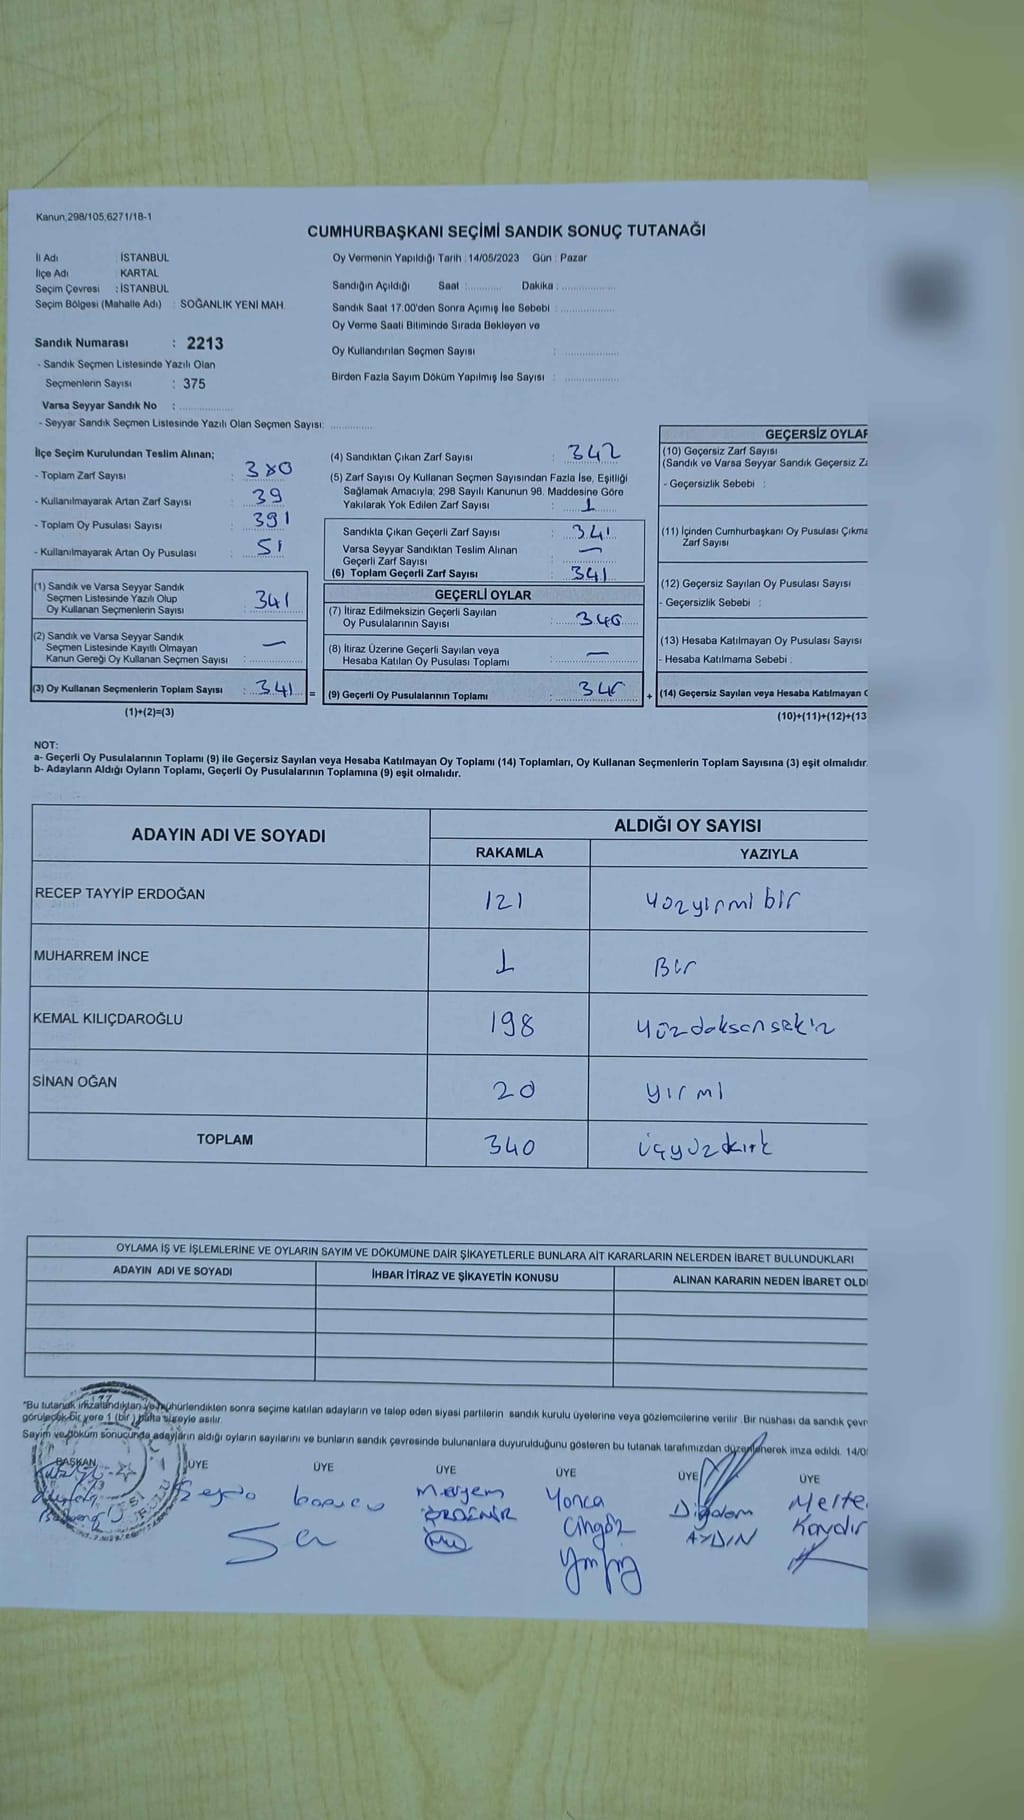 Kanun,298/105,6271/18-1
CUMHURBAŞKANI SEÇİMİ SANDIK SONUÇ TUTANAĞI
İl Adı : İSTANBUL
İlçe Adı : KARTAL
Seçim Çevresi : İSTANBUL
Seçim Bölgesi (Mahalle Adı) : SOĞANLIK YENİ MAH.
Oy Vermenin Yapıldığı Tarih : 14/05/2023 Gün : Pazar
Sandığın Açıldığı Saat : Dakika :
Sandık Saat 17.00'den Sonra Açımış İse Sebebi :
Oy Verme Saati Bitiminde Sırada Bekleyen ve
Oy Kullandırılan Seçmen Sayısı :
Birden Fazla Sayım Döküm Yapılmış İse Sayısı :
Sandık Numarası : 2213
- Sandık Seçmen Listesinde Yazılı Olan
Seçmenlerin Sayısı : 375
Varsa Seyyar Sandık No :
- Seyyar Sandık Seçmen Listesinde Yazılı Olan Seçmen Sayısı:
İlçe Seçim Kurulundan Teslim Alınan;
- Toplam Zarf Sayısı : 380
- Kullanılmayarak Artan Zarf Sayısı : 39
- Toplam Oy Pusulası Sayısı : 391
- Kullanılmayarak Artan Oy Pusulası : 51
(1) Sandık ve Varsa Seyyar Sandık
Seçmen Listesinde Yazılı Olup
Oy Kullanan Seçmenlerin Sayısı : 341
(2) Sandık ve Varsa Seyyar Sandık
Seçmen Listesinde Kayıtlı Olmayan
Kanun Gereği Oy Kullanan Seçmen Sayısı : —
(3) Oy Kullanan Seçmenlerin Toplam Sayısı : 341 =
(1)+(2)=(3)
(4) Sandıktan Çıkan Zarf Sayısı : 342
(5) Zarf Sayısı Oy Kullanan Seçmen Sayısından Fazla İse, Eşitliği
Sağlamak Amacıyla; 298 Sayılı Kanunun 98. Maddesine Göre
Yakılarak Yok Edilen Zarf Sayısı : 1
Sandıkta Çıkan Geçerli Zarf Sayısı : 341
Varsa Seyyar Sandıktan Teslim Alınan
Geçerli Zarf Sayısı : —
(6) Toplam Geçerli Zarf Sayısı : 341
GEÇERLİ OYLAR
(7) İtiraz Edilmeksizin Geçerli Sayılan
Oy Pusulalarının Sayısı : 340
(8) İtiraz Üzerine Geçerli Sayılan veya
Hesaba Katılan Oy Pusulası Toplamı : —
(9) Geçerli Oy Pusulalarının Toplamı : 340 +
GEÇERSİZ OYLAR
(10) Geçersiz Zarf Sayısı
(Sandık ve Varsa Seyyar Sandık Geçersiz Za
- Geçersizlik Sebebi :
(11) İçinden Cumhurbaşkanı Oy Pusulası Çıkma
Zarf Sayısı
(12) Geçersiz Sayılan Oy Pusulası Sayısı
- Geçersizlik Sebebi :
(13) Hesaba Katılmayan Oy Pusulası Sayısı
- Hesaba Katılmama Sebebi :
(14) Geçersiz Sayılan veya Hesaba Katılmayan O
(10)+(11)+(12)+(13
NOT:
a- Geçerli Oy Pusulalarının Toplamı (9) ile Geçersiz Sayılan veya Hesaba Katılmayan Oy Toplamı (14) Toplamları, Oy Kullanan Seçmenlerin Toplam Sayısına (3) eşit olmalıdır.
b- Adayların Aldığı Oyların Toplamı, Geçerli Oy Pusulalarının Toplamına (9) eşit olmalıdır.
ADAYIN ADI VE SOYADI
ALDIĞI OY SAYISI
RAKAMLA YAZIYLA
RECEP TAYYİP ERDOĞAN 121 yüzyirmi bir
MUHARREM İNCE 1 Bir
KEMAL KILIÇDAROĞLU 198 yüzdoksansekiz
SİNAN OĞAN 20 yirmi
TOPLAM 340 üçyüzkırk
OYLAMA İŞ VE İŞLEMLERİNE VE OYLARIN SAYIM VE DÖKÜMÜNE DAİR ŞİKAYETLERLE BUNLARA AİT KARARLARIN NELERDEN İBARET BULUNDUKLARI
ADAYIN ADI VE SOYADI İHBAR İTİRAZ VE ŞİKAYETİN KONUSU ALINAN KARARIN NEDEN İBARET OLD
"Bu tutanak imzalandıktan ve mühürlendikten sonra seçime katılan adayların ve talep eden siyasi partilerin sandık kurulu üyelerine veya gözlemcilerine verilir. Bir nüshası da sandık çevr
görülecek bir yere 1 (bir) hafta süreyle asılır.
Sayım ve döküm sonucunda adayların aldığı oyların sayılarını ve bunların sandık çevresinde bulunanlara duyurulduğunu gösteren bu tutanak tarafımızdan düzenlenerek imza edildi. 14/0
BAŞKAN ÜYE ÜYE ÜYE ÜYE ÜYE ÜYE
Meryem
ERDEMİR
Yonca
Cingöz
AYDIN